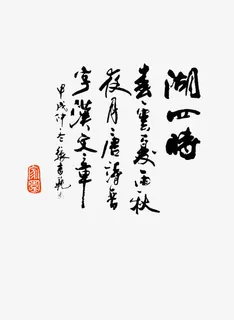 湖四時
春雲夏雨秋
夜月唐詩晉
字漢文章
甲戌仲冬張書